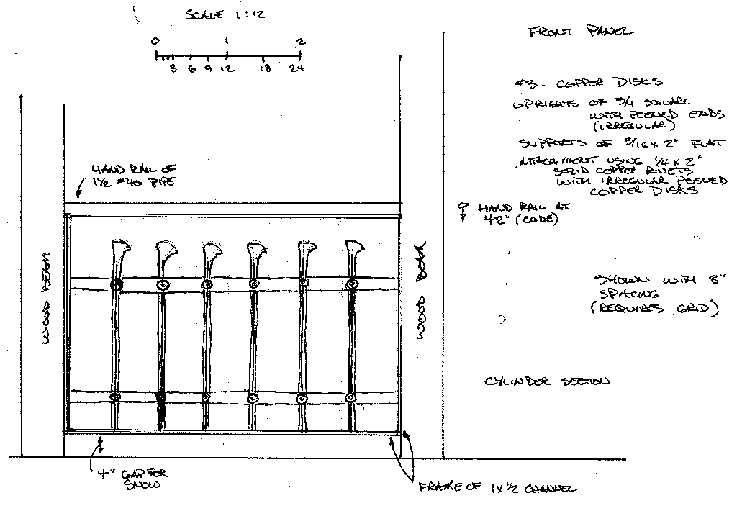 SCALE 1:12
0 1 2
3 6 9 12 18 24
FRONT PANEL
#3 - COPPER DISKS
UPRIGHTS OF 3/4 SQUARE
WITH PEENED ENDS
(IRREGULAR)
SUPPORTS OF 3/16 x 2" FLAT
ATTACHMENT USING 1/4 x 2"
SOLID COPPER RIVETS
WITH IRREGULAR PEENED
COPPER DISKS
HAND RAIL OF
1 1/2 #40 PIPE
HAND RAIL AT
42" (CODE)
WOOD BEAM
WOOD BEAM
SHOWN WITH 8"
SPACING
(REQUIRES GRID)
CYLINDER SECTION
4" GAP FOR
SNOW
FRAME OF 1 x 1/2 CHANNEL